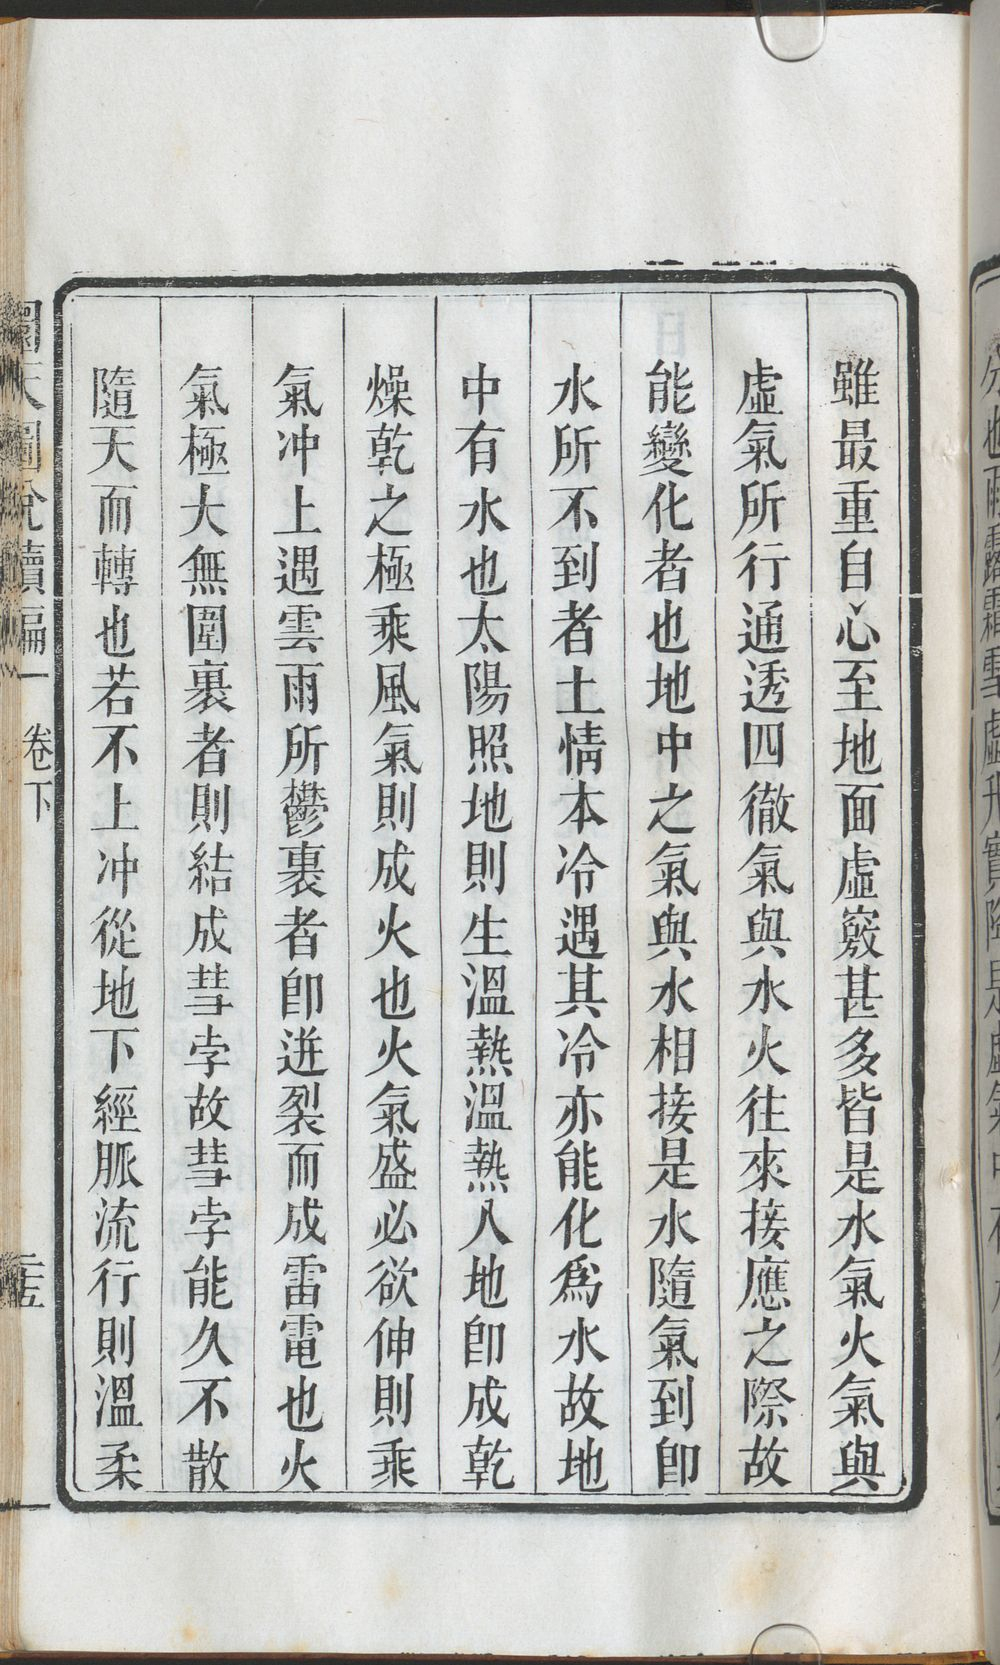 雖最重自心至地面虛竅甚多皆是水氣火氣與
虛氣所行通透四徹氣與水火往來接應之際故
能變化者也地中之氣與水相接是水隨氣到卽
水所不到者土情本冷遇其冷亦能化爲水故地
中有水也太陽照地則生溫熱溫熱入地卽成乾
燥乾之極乘風氣則成火也火氣盛必欲伸則乘
氣冲上遇雲雨所鬱裹者卽迸裂而成雷電也火
氣極大無圍裹者則結成彗孛故彗孛能久不散
隨天而轉也若不上冲從地下經脈流行則溫柔
圜天圖說續編 卷下 二十五